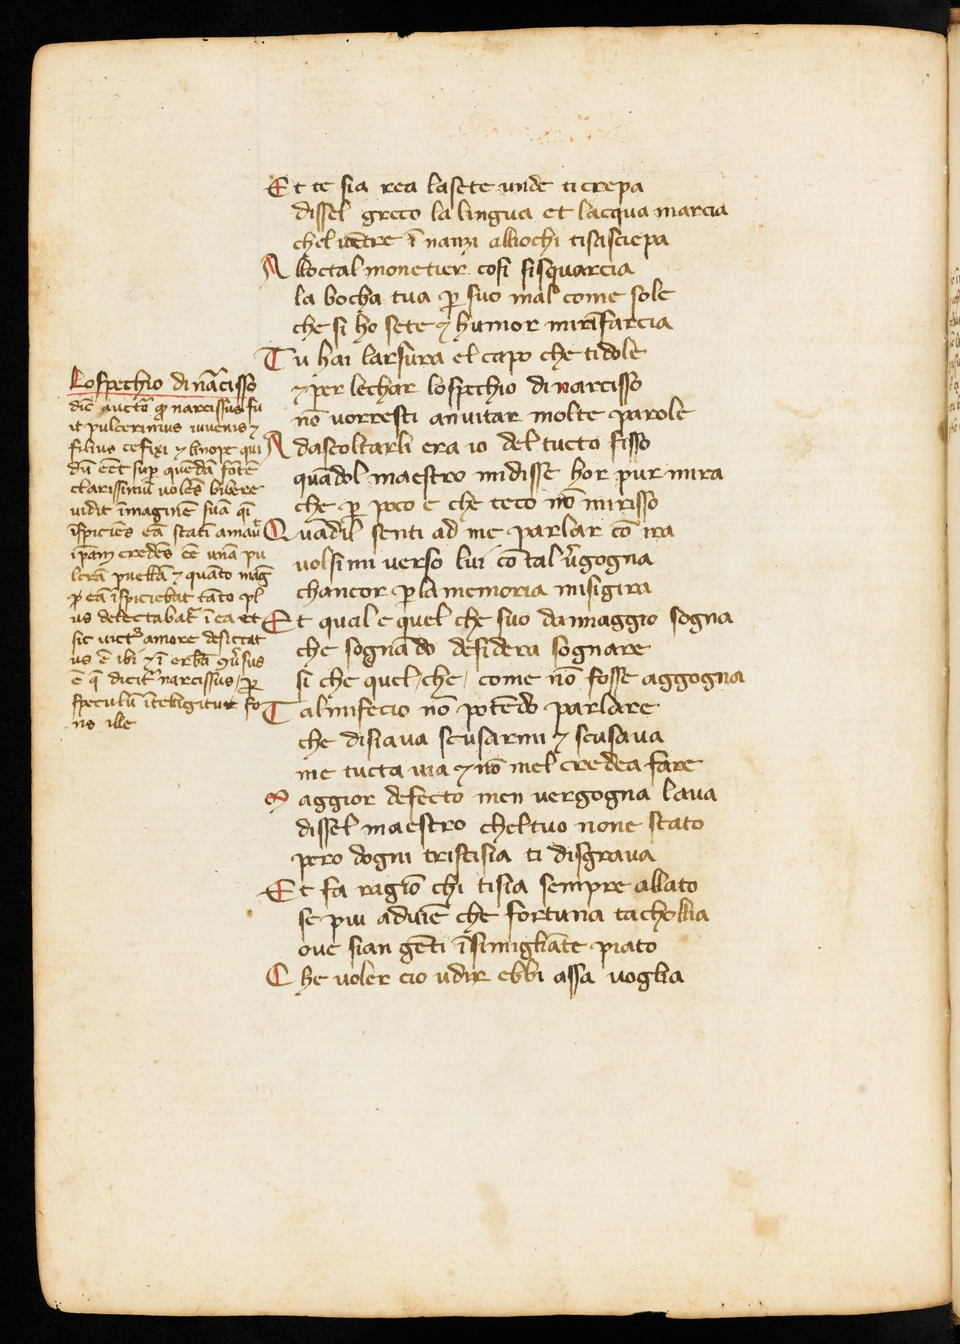 Et te sia rea lasete unde ti crepa
dissel greco la lingua et lacqua marcia
chel uētre ī nanzi alliochi tisasciepa
Alloctal monetier cosi sisquarcia
la bocha tua ꝑ suo mal come sole
che si ho sete ⁊ humor mirīfarcia
Tu hai larsura el capo che tidole
⁊ per lechar lospechio di narcisso
nō uorresti anuitar molte parole
Adascoltarli era io del tucto fisso
quādol maestro midisse hor pur mira
che ꝑ poco e che teco nō mirisso
Quādil senti ad me parlar cō ira
uolsimi uerso lui cō tal ūgogna
chancor ꝑ la memoria misigira
Et qual e quel che suo dammaggio sogna
che sognādo desidera sognare
si che quel, che, come nō fosse aggogna
Tal mifecio nō potēdo parlare
che disiaua scusarmi ⁊ scusaua
me tucta uia ⁊ nō mel credea fare
Maggior defecto men uergogna laua
dissel maestro chel tuo none stato
pero dogni tristisia ti disgraua
Et fa ragiō chi tisia sempre allato
se piu aduiē che fortuna tachollia
oue sian gēti īsimigliāte piato
Che uoler cio udir ebbi assa uoglia
Lo spechio di nācisso
dic̄ auctō ꝙ narcissus fu
it pulcerimus iuuenis ⁊
filius cefixi ⁊ linope qui
dū eēt suꝑ quedā fōtē
clarissimū uolēs bibere
uidit īmaginē suā qī
īspiciēs eā statī amauͥ
īpam credēs eē unā pu
lcrā puellā ⁊ quāto maḡ
ꝑ eā īspiciebat tāto pl
us delectabat̄ ī ea et
sic uictꝰ amore desiccat
us ē ibi ⁊ ī erbā ꝯūsus
ē q̄ dicit̄ narcissus, ꝑ
speculū ītelligitur fo
ns ille